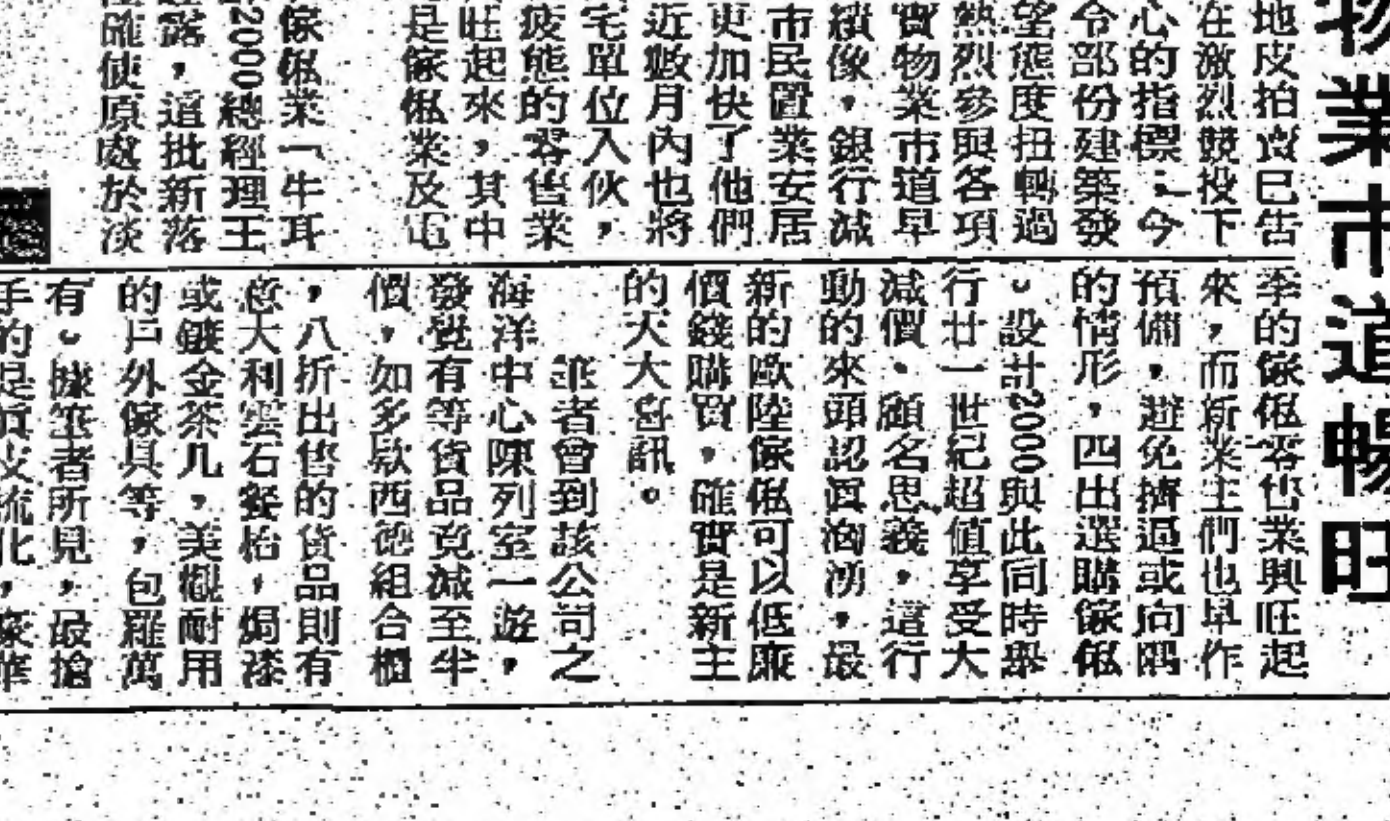 物業市道暢旺
地皮拍賣已告
在激烈競投下
心的指標；今
令部份建築發
望態度扭轉過
熱烈參與各項
實物業市道早
續像，銀行減
市民置業安居
更加快了他們
近數月內也將
宅單位入伙，
疲態的零售業
旺起來，其中
是傢俬業及電
傢俬業「牛耳
2000總經理王
透露，這批新落
確使原處於淡
季的傢俬零售業興旺起
來，而新業主們也早作
預備，避免擠逼或向隅
的情形，四出選購傢俬
。設計2000與此同時舉
行廿一世紀超值享受大
減價。顧名思義，這行
動的來頭認真洶湧，最
新的歐陸傢俬可以低廉
價錢購買，確實是新主
的天大喜訊。
筆者曾到該公司之
海洋中心陳列室一遊，
發覺有等貨品竟減至半
價，如多款西德組合櫃
，八折出售的貨品則有
意大利雲石餐枱，焗漆
或鍍金茶几，美觀耐用
的戶外傢具等，包羅萬
有。據筆者所見，最搶
手的是真皮梳化，豪華